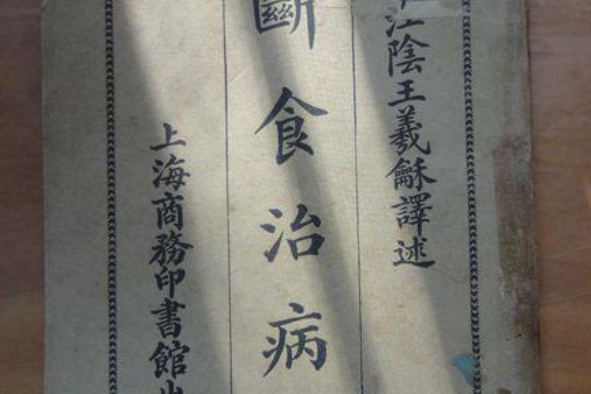 江陰王羲龢譯述
斷食治病
上海商務印書館出